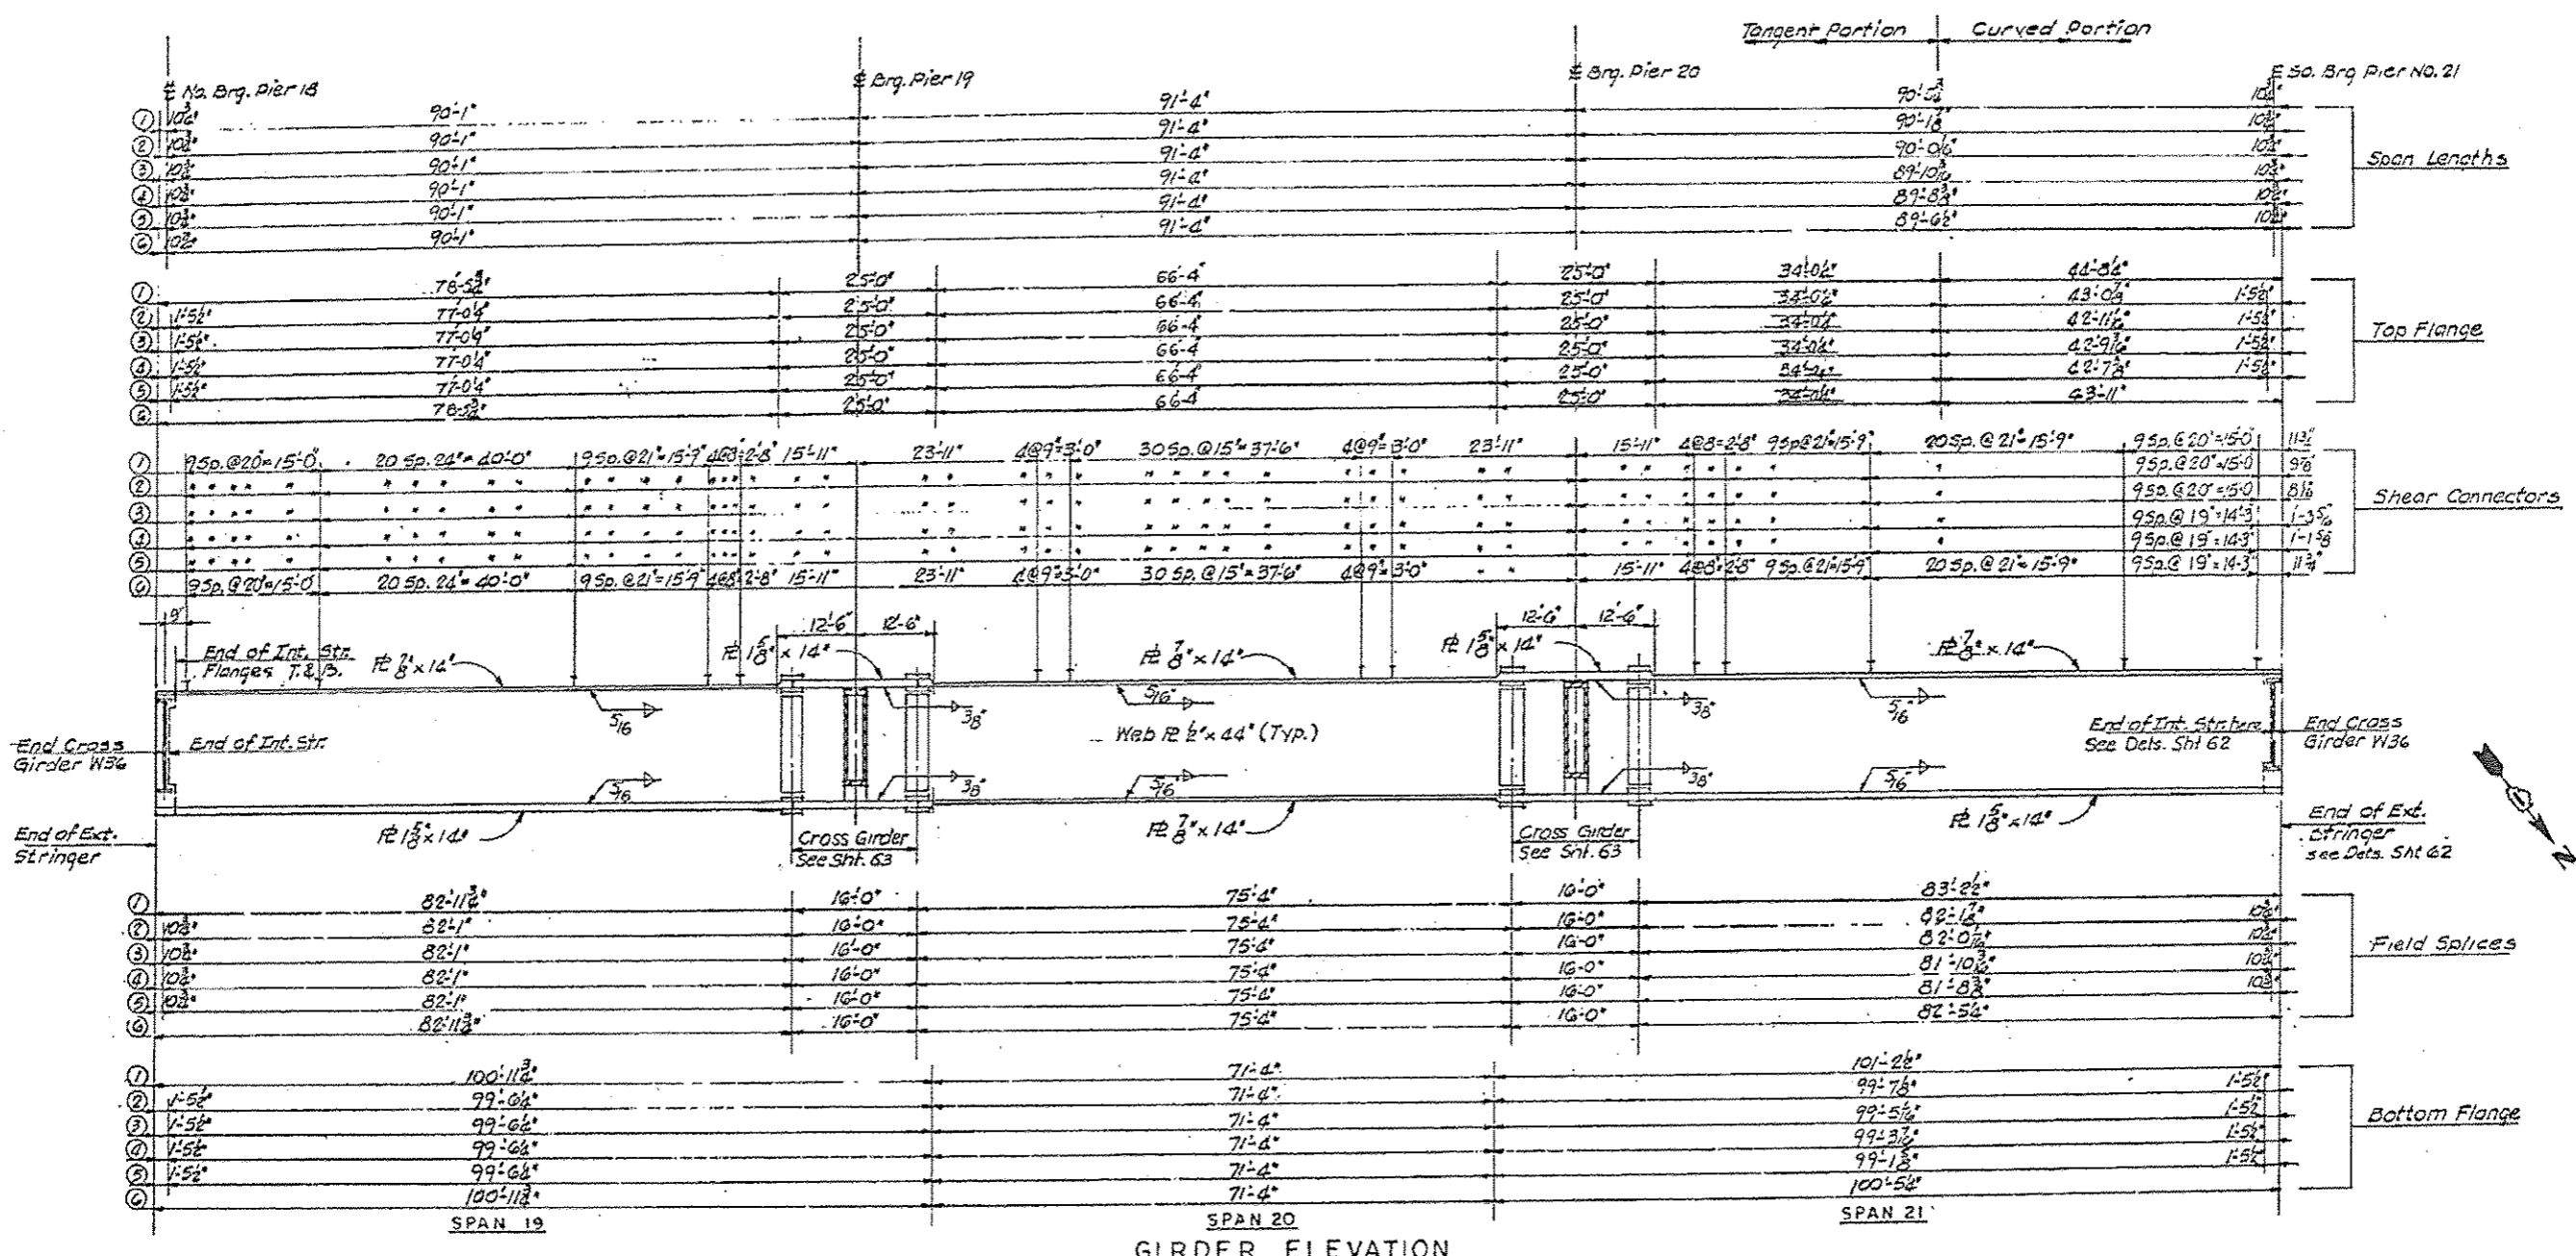 Tangent Portion Curved Portion
℄ No. Brg. Pier 18 ℄ Brg. Pier 19 ℄ Brg. Pier 20 ℄ So. Brg Pier No. 21
① 10¾" 90'-1" 91'-4" 90'-5¾" 10¾"
② 10¾" 90'-1" 91'-4" 90'-1⅞" 10¾"
③ 10¾" 90'-1" 91'-4" 90'-0 1/16" 10¾"
④ 10¾" 90'-1" 91'-4" 89'-10 3/16" 10¾"
⑤ 10¾" 90'-1" 91'-4" 89'-8⅜" 10¾"
⑥ 90'-1" 91'-4" 89'-6½"
Span Lengths
① 78'-5¾" 25'-0" 66'-4" 25'-0" 34'-0¼" 44'-8¼"
② 1'-5½" 77'-0¼" 25'-0" 66'-4" 25'-0" 34'-0¼" 43'-0⅞" 1'-5½"
③ 1'-5½" 77'-0¼" 25'-0" 66'-4" 25'-0" 34'-0¼" 42'-11 1/16" 1'-5½"
④ 1'-5½" 77'-0¼" 25'-0" 66'-4" 25'-0" 34'-0¼" 42'-9 3/16" 1'-5½"
⑤ 1'-5½" 77'-0¼" 25'-0" 66'-4" 25'-0" 42'-7⅜" 1'-5½"
⑥ 78'-5¾" 25'-0" 66'-4" 25'-0" 34'-0¼" 43'-11"
Top Flange
① 9 Sp. @ 20"=15'-0" 20 Sp. 24"=40'-0" 9 Sp. @ 21"=15'-9" 4@8"=2'-8" 15'-11" 23'-11" 4@9"=3'-0" 30 Sp. @ 15"=37'-6" 4@9"=3'-0" 23'-11" 15'-11" 4@8=2'-8" 9 Sp @ 21"=15'-9" 20 Sp. @ 21"=15'-9" 9 Sp. @ 20"=15'-0" 11¾"
② " " " " " 9 Sp. @ 20"=15'-0 9⅞"
③ " " " " " 9 Sp. @ 20"=15'-0 8 1/16"
④ " " " " " 9 Sp. @ 19"=14'-3" 1'-3 5/16
⑤ " " " " " 9 Sp. @ 19"=14'-3" 1'-1⅝
⑥ 9 Sp. @ 20"=15'-0 20 Sp. 24"=40'-0" 9 Sp. @ 21"=15'-9" 4@8"=2'-8" 15'-11" 23'-11" 4@9"=3'-0" 30 Sp. @ 15"=37'-6" 4@9"=3'-0" " " 15'-11" 4@8"=2'-8" 9 Sp. @ 21"=15'-9" 20 Sp. @ 21"=15'-9" 9 Sp. @ 19"=14'-3" 11¾"
Shear Connectors
9" 12'-6" 12'-6" 12'-6" 12'-6"
End of Int. Str.
Flanges T. & B.
℄ ⅞" x 14" ℄ 1⅝" x 14" ℄ ⅞" x 14" ℄ 1⅝" x 14" ℄ ⅞" x 14"
5/16 3/8" 5/16 3/8" 5/16
End Cross
Girder W36
End of Int. Str.
Web ℄ ½" x 44" (Typ.)
End of Int. Str. here
See Dets. Sht 62
End Cross
Girder W36
5/16 3/8" 5/16 3/8" 5/16
N
End of Ext.
Stringer
℄ 1⅝" x 14" ℄ ⅞" x 14" ℄ 1⅝" x 14"
Cross Girder
See Sht. 63
Cross Girder
See Sht. 63
End of Ext.
Stringer
see Dets. Sht 62
① 82'-11¾" 16'-0" 75'-4" 16'-0" 83'-2½"
② 10¾" 82'-1" 16'-0" 75'-4" 16'-0" 82'-1⅞" 10¾"
③ 10¾" 82'-1" 16'-0" 75'-4" 16'-0" 82'-0 1/16" 10¾"
④ 10¾" 82'-1" 16'-0" 75'-4" 16'-0" 81'-10 3/16" 10¾"
⑤ 10¾" 82'-1" 16'-0" 75'-4" 16'-0" 81'-8⅜" 10¾"
⑥ 82'-11¾" 16'-0" 75'-4" 16'-0" 82'-5¼"
Field Splices
① 100'-11¾" 71'-4" 101'-2½"
② 1'-5½" 99'-6¼" 71'-4" 99'-7⅛" 1'-5½"
③ 1'-5½" 99'-6¼" 71'-4" 99'-5 5/16" 1'-5½"
④ 1'-5½" 99'-6¼" 71'-4" 99'-3 7/16" 1'-5½"
⑤ 1'-5½" 99'-6¼" 71'-4" 99'-1⅝" 1'-5½"
⑥ 100'-11¾" 71'-4" 100'-5¼"
Bottom Flange
SPAN 19 SPAN 20 SPAN 21
GIRDER ELEVATION